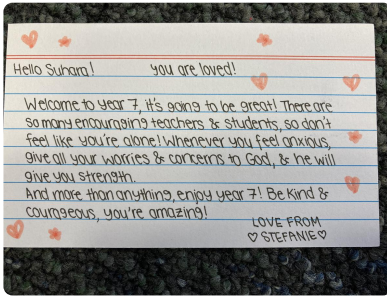 Hello Suhara! you are loved!
Welcome to year 7, it's going to be great! There are
so many encouraging teachers & students, so don't
feel like you're alone! Whenever you feel anxious,
give all your worries & concerns to God, & he will
give you strength.
And more than anything, enjoy year 7! Be kind &
courageous, you're amazing!
LOVE FROM
♡ STEFANIE ♡